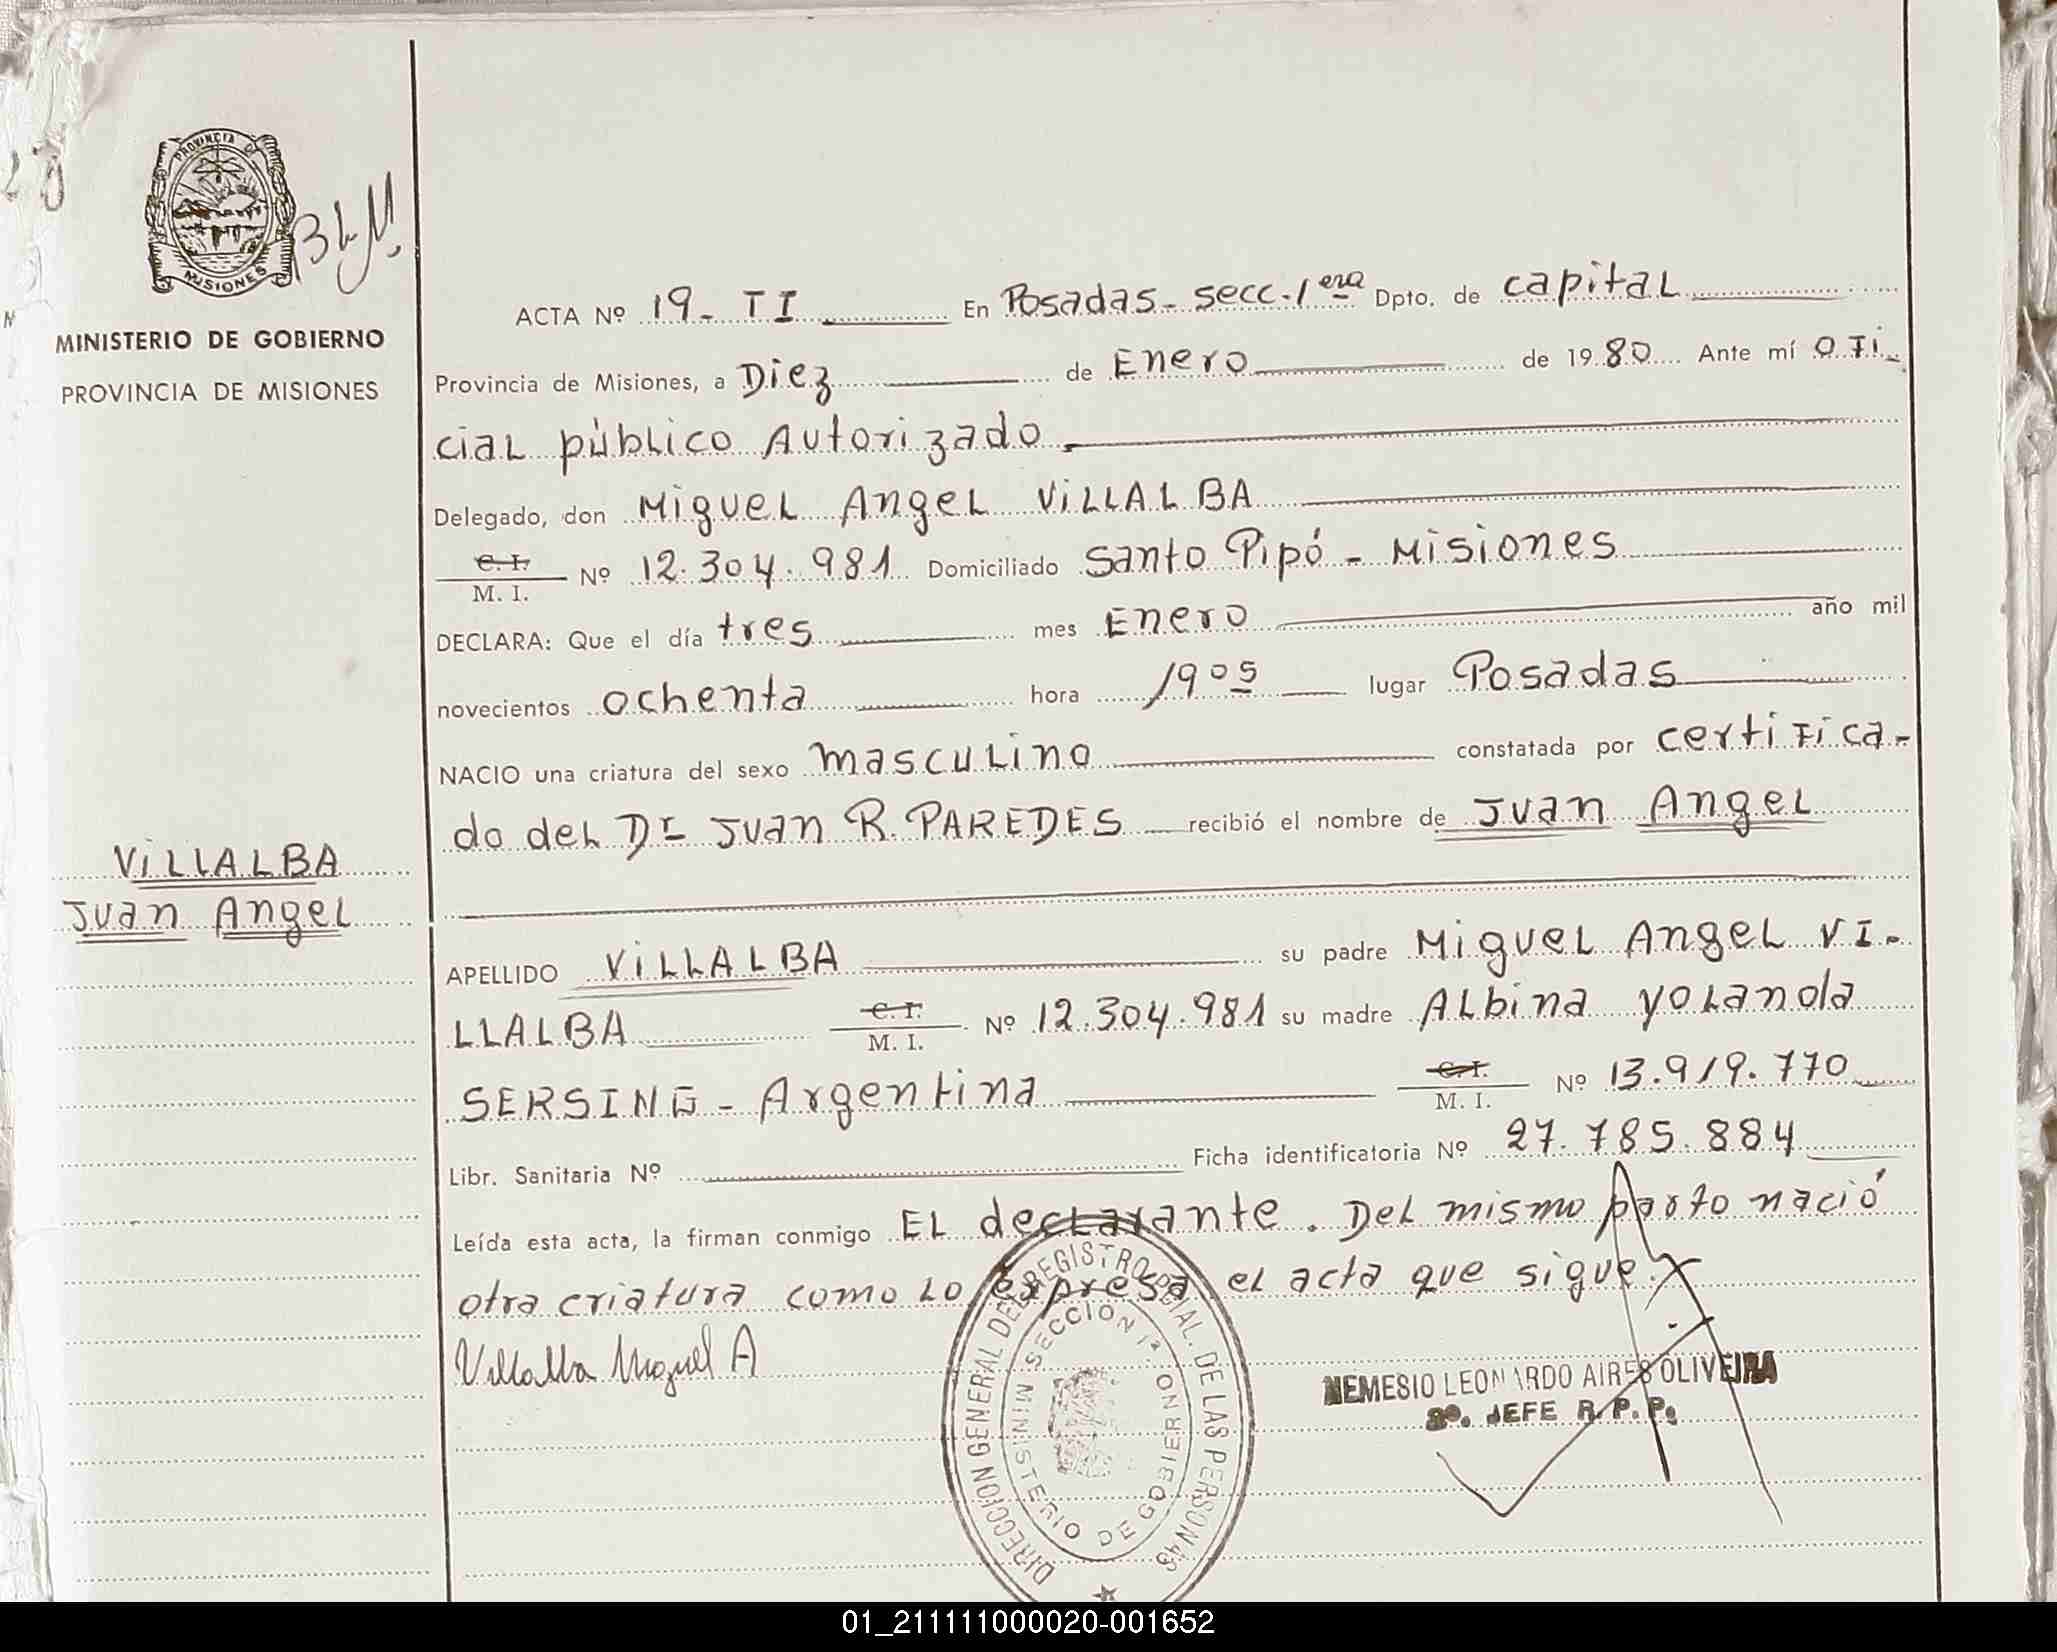 PROVINCIA DE
MISIONES
MINISTERIO DE GOBIERNO
PROVINCIA DE MISIONES
ACTA Nº 19- TI En Posadas- secc. 1era Dpto. de capital
Provincia de Misiones, a Diez de Enero de 1980 Ante mí ofi-
cial público Autorizado
Delegado, don Miguel Angel VILLALBA
C. I. M. I. Nº 12.304.981 Domiciliado Santo Pipó - Misiones
DECLARA: Que el día tres mes Enero año mil
novecientos ochenta hora 19 05 lugar Posadas
NACIO una criatura del sexo masculino constatada por certifica-
do del Dr Juan R. PAREDES recibió el nombre de Juan Angel
VILLALBA
Juan Angel
APELLIDO VILLALBA su padre Miguel Angel VI-
LLALBA C. I. M. I. Nº 12.304.981 su madre Albina Yolanda
SERSING - Argentina C. I. M. I. Nº 13.919.770
Libr. Sanitaria Nº Ficha identificatoria Nº 27.785.884
Leída esta acta, la firman conmigo EL declarante. Del mismo parto nació
otra criatura como lo expresa el acta que sigue.
Villalba Miguel A
DIRECCION GENERAL DEL REGISTRO PCIAL. DE LAS PERSONAS
SECCION 1ª
MINISTERIO DE GOBIERNO
NEMESIO LEONARDO AIRES OLIVEIRA
2º. JEFE R. P. P.
01_211111000020-001652